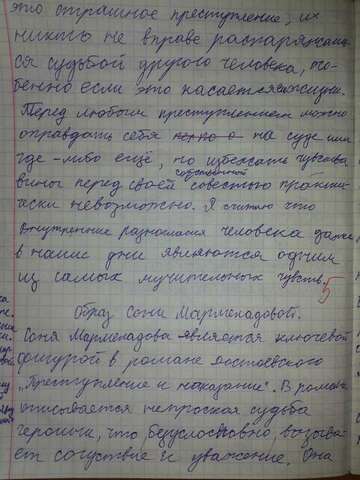 это страшное преступление, их
никто не вправе распоряжать
ся судьбой другого человека, осо-
бенно если это касается жизни.
Перед любым преступлением можно
оправдать себя на суде или
где-либо ещё, но избежать чувства
вины перед своей собственной совестью практи
чески невозможно. Я считаю что
внутренние разногласия человека даже
в наши дни являются одним
из самых мучительных чувств. 5
Образ Сони Мармеладовой.
Соня Мармеладова является ключевой
фигурой в романе Достоевского
„Преступление и наказание". В романе
описывается непростая судьба
героини, что безусловно, вызыва-
ет сочуствие и уважение. Она